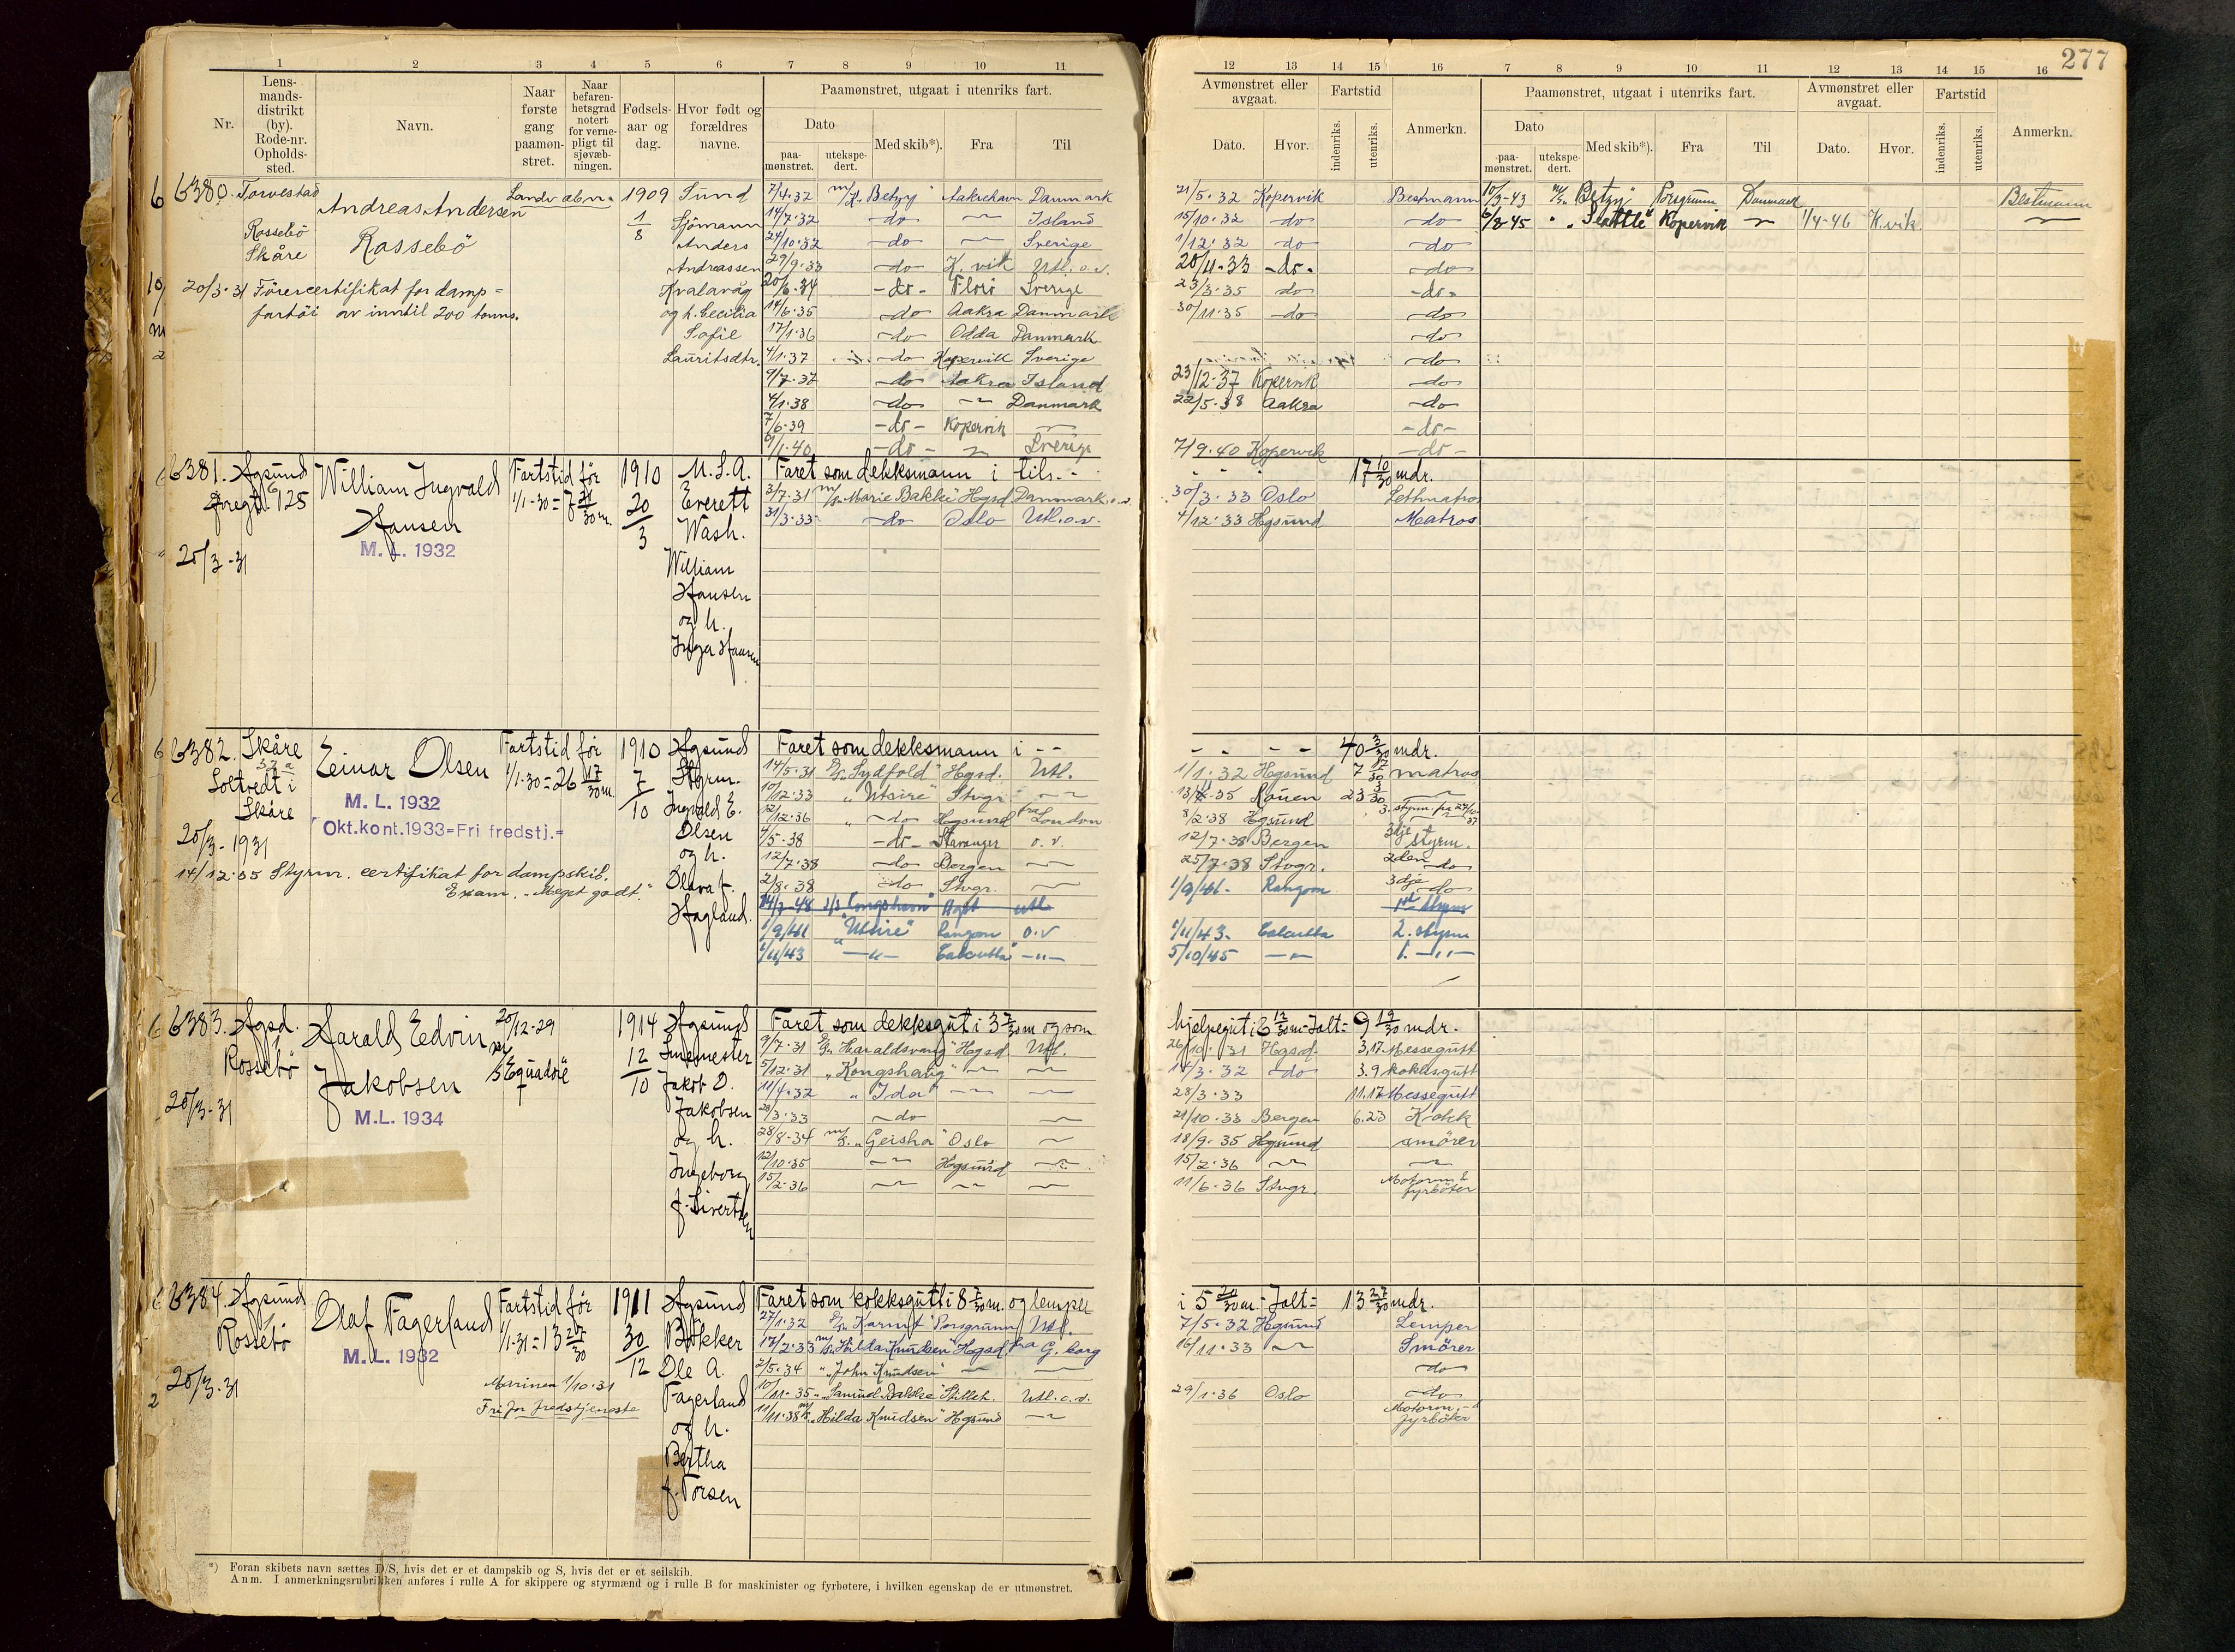 277
1 2 3 4 5 6 7 8 9 10 11
12 13 14 15 16 7 8 9 10 11 12 13 14 15 16
Nr.
Lens-
mands-
distrikt
(by).
Rode-nr.
Opholds-
sted.
Navn.
Naar
første
gang
paamøn-
stret.
Naar
befaren-
hetsgrad
notert
for verne-
pligt til
sjøvæb-
ningen.
Fødsels-
aar og
dag.
Hvor født og
forældres
navne.
Paamønstret, utgaat i utenriks fart.
Dato
paa-
mønstret.
utekspe-
dert.
Med skib*).
Fra
Til
Avmønstret eller
avgaat.
Dato.
Hvor.
Fartstid
indenriks.
utenriks.
Anmerkn.
Paamønstret, utgaat i utenriks fart.
Dato
paa-
mønstret.
utekspe-
dert.
Med skib*).
Fra
Til
Avmønstret eller
avgaat.
Dato.
Hvor.
Fartstid
indenriks.
utenriks.
Anmerkn.
6380. Torvestad
Rossebö
Skåre
Andreas Andersen
Rossebö
1909
1/8
Sund
Sjömann
Anders
Andreassen
Kvalavåg
og h. Cecilia
Sofie
Lauritsdtr.
20/3-31 Förercertifikat for damp=
fartöi av inntil 200 tonns.
7/4-32 m/k "Betzy" Aakrehavn Danmark 21/5-32 Kopervik Bestmann
14/7-32 do Island 15/10-32 do do
24/10-32 do Sverige 1/12-32 do do
29/9-33 do K.vik Utl. o.v. 20/11-33 do do
20/6-34 do Florö Sverige 23/3-35 do do
14/6-35 do Aakra Danmark 30/11-35 do do
17/1-36 do Odda Danmark do
4/1-37 do Kopervik Sverige do
9/7-37 do Aakra Island 23/12-37 Kopervik do
4/1-38 do Danmark 22/5-38 Aakra do
7/6-39 do Kopervik do
9/1-40 do Sverige 7/9-40 Kopervik do
10/3-43 "Betzy" Porsgrunn Danmark Bestmann
Kopervik 1/4-46 K.vik
6381. Hgsund
125
25/3-31
William Ingvald
Hansen
M. L. 1932
Fartstid før
1/1-30 = 7 21/30 m.
1910
20/3
U.S.A.
Everett
Wash.
William
Hansen
og h.
Inga Hansen
Faret som dekksmann i tils. - 17 10/30 mdr.
3/7-31 Marie Bakke Hgsd Danmark o.v. 30/3-33 Oslo Lettmatros
31/3-33 do Oslo Utl. o.v. 4/12-33 Hgsund Matros
6382. Skåre
37 a
Soltvedt i
Skåre
20/3-1931
Einar Olsen
M. L. 1932
Okt.kont.1933=Fri fredstj.=
Fartstid før
1/1-30 = 26 17/30 m.
1910
7/10
Hgsund
Styrm.
Ingvald E.
Olsen
og h.
Olava f.
Hagland.
14/12-35 Styrm. certifikat for dampskib.
Exam. "Meget godt."
Faret som dekksmann i - - 40 3/30 mdr.
14/5-31 "Sydfold" Hgsd. Utl. 1/1-32 Hgsund 7 17/30 matros
10/12-33 "Utsire" Stvgr 13/11-35 Rouen 23 3/30
2/12-36 do Hgsund fra London 8/2-38 Hgsund 3. styrm. fra 24/10-37
4/5-38 do Stavanger o.v. 12/7-38 Bergen 3dje styrm.
12/7-38 do Bergen 25/7-38 Stvgr. 2den do
2/8-38 do Stvgr. 1/9/41- Rangoon 3dje do
1/9/41 "Utsire" Rangoon o.v 1/11/43- Calcutta 2. styrm
1/11/43 Calcutta 5/10/45 1.
6383. Hgsd.
Rossebö
25/3-31
Harald Edvin
Jakobsen
M.L. 1934
20/12-29
1914
12/10
Hgsund
Jakob O.
Jakobsen
og h.
Ingeborg
f. Sivertsen
Faret som dekksgut i 3 7/30 m og som hjelpegut i 6 12/30 m - Ialt = 9 19/30 mdr.
9/7-31 "Haraldsvang" Hgsd Utl. 26/10-31 Hgsd. 3.17 Messegutt
5/12-31 "Kongshaug" 3-32 do 3.9 kokksgutt
11/4-32 "Ida" 28/3-33 11.17 Messegutt
28/3-33 do 21/10-33 Bergen 6.23 Kokk
28/8-34 "Geisha" Oslo 18/9-35 Hgsund smörer
12/10-35 Hgsund 15/2-36
15/2-36 11/6-36 Stvgr. Motorm. &
fyrböter
6384. Hgsund
Rossebö
25/3-31
Olaf Fagerland
M. L. 1932
Fartstid før
1/1-31 = 13 27/30
Marinen 1/10-31
Fri for fredstjeneste
1911
30/12
Hgsund
Bökker
Ole A.
Fagerland
og h.
Bertha
f. Torsen
Faret som kokksgutt i 8 7/30 m. og lemper i 5 20/30 m - Ialt = 13 27/30 mdr.
27/1-32 "Karmt" Porsgrunn Utl. 7/5-32 Hgsund Lemper
17/2-33 "Hilda Knudsen" Hgsd fra G.borg 16/11-33 Smörer
2/5-34 "John Knudsen" do
10/11-35 "Samuel Bakke" Utl. o.v. 29/1-36 Oslo do
11/11-38 "Hilda Knudsen" Hgsund Motorm. -
fyrböter
*) Foran skibets navn sættes D/S, hvis det er et dampskib og S, hvis det er et seilskib.
Anm. I anmerkningsrubrikken anføres i rulle A for skippere og styrmænd og i rulle B for maskinister og fyrbøtere, i hvilken egenskap de er utmønstret.